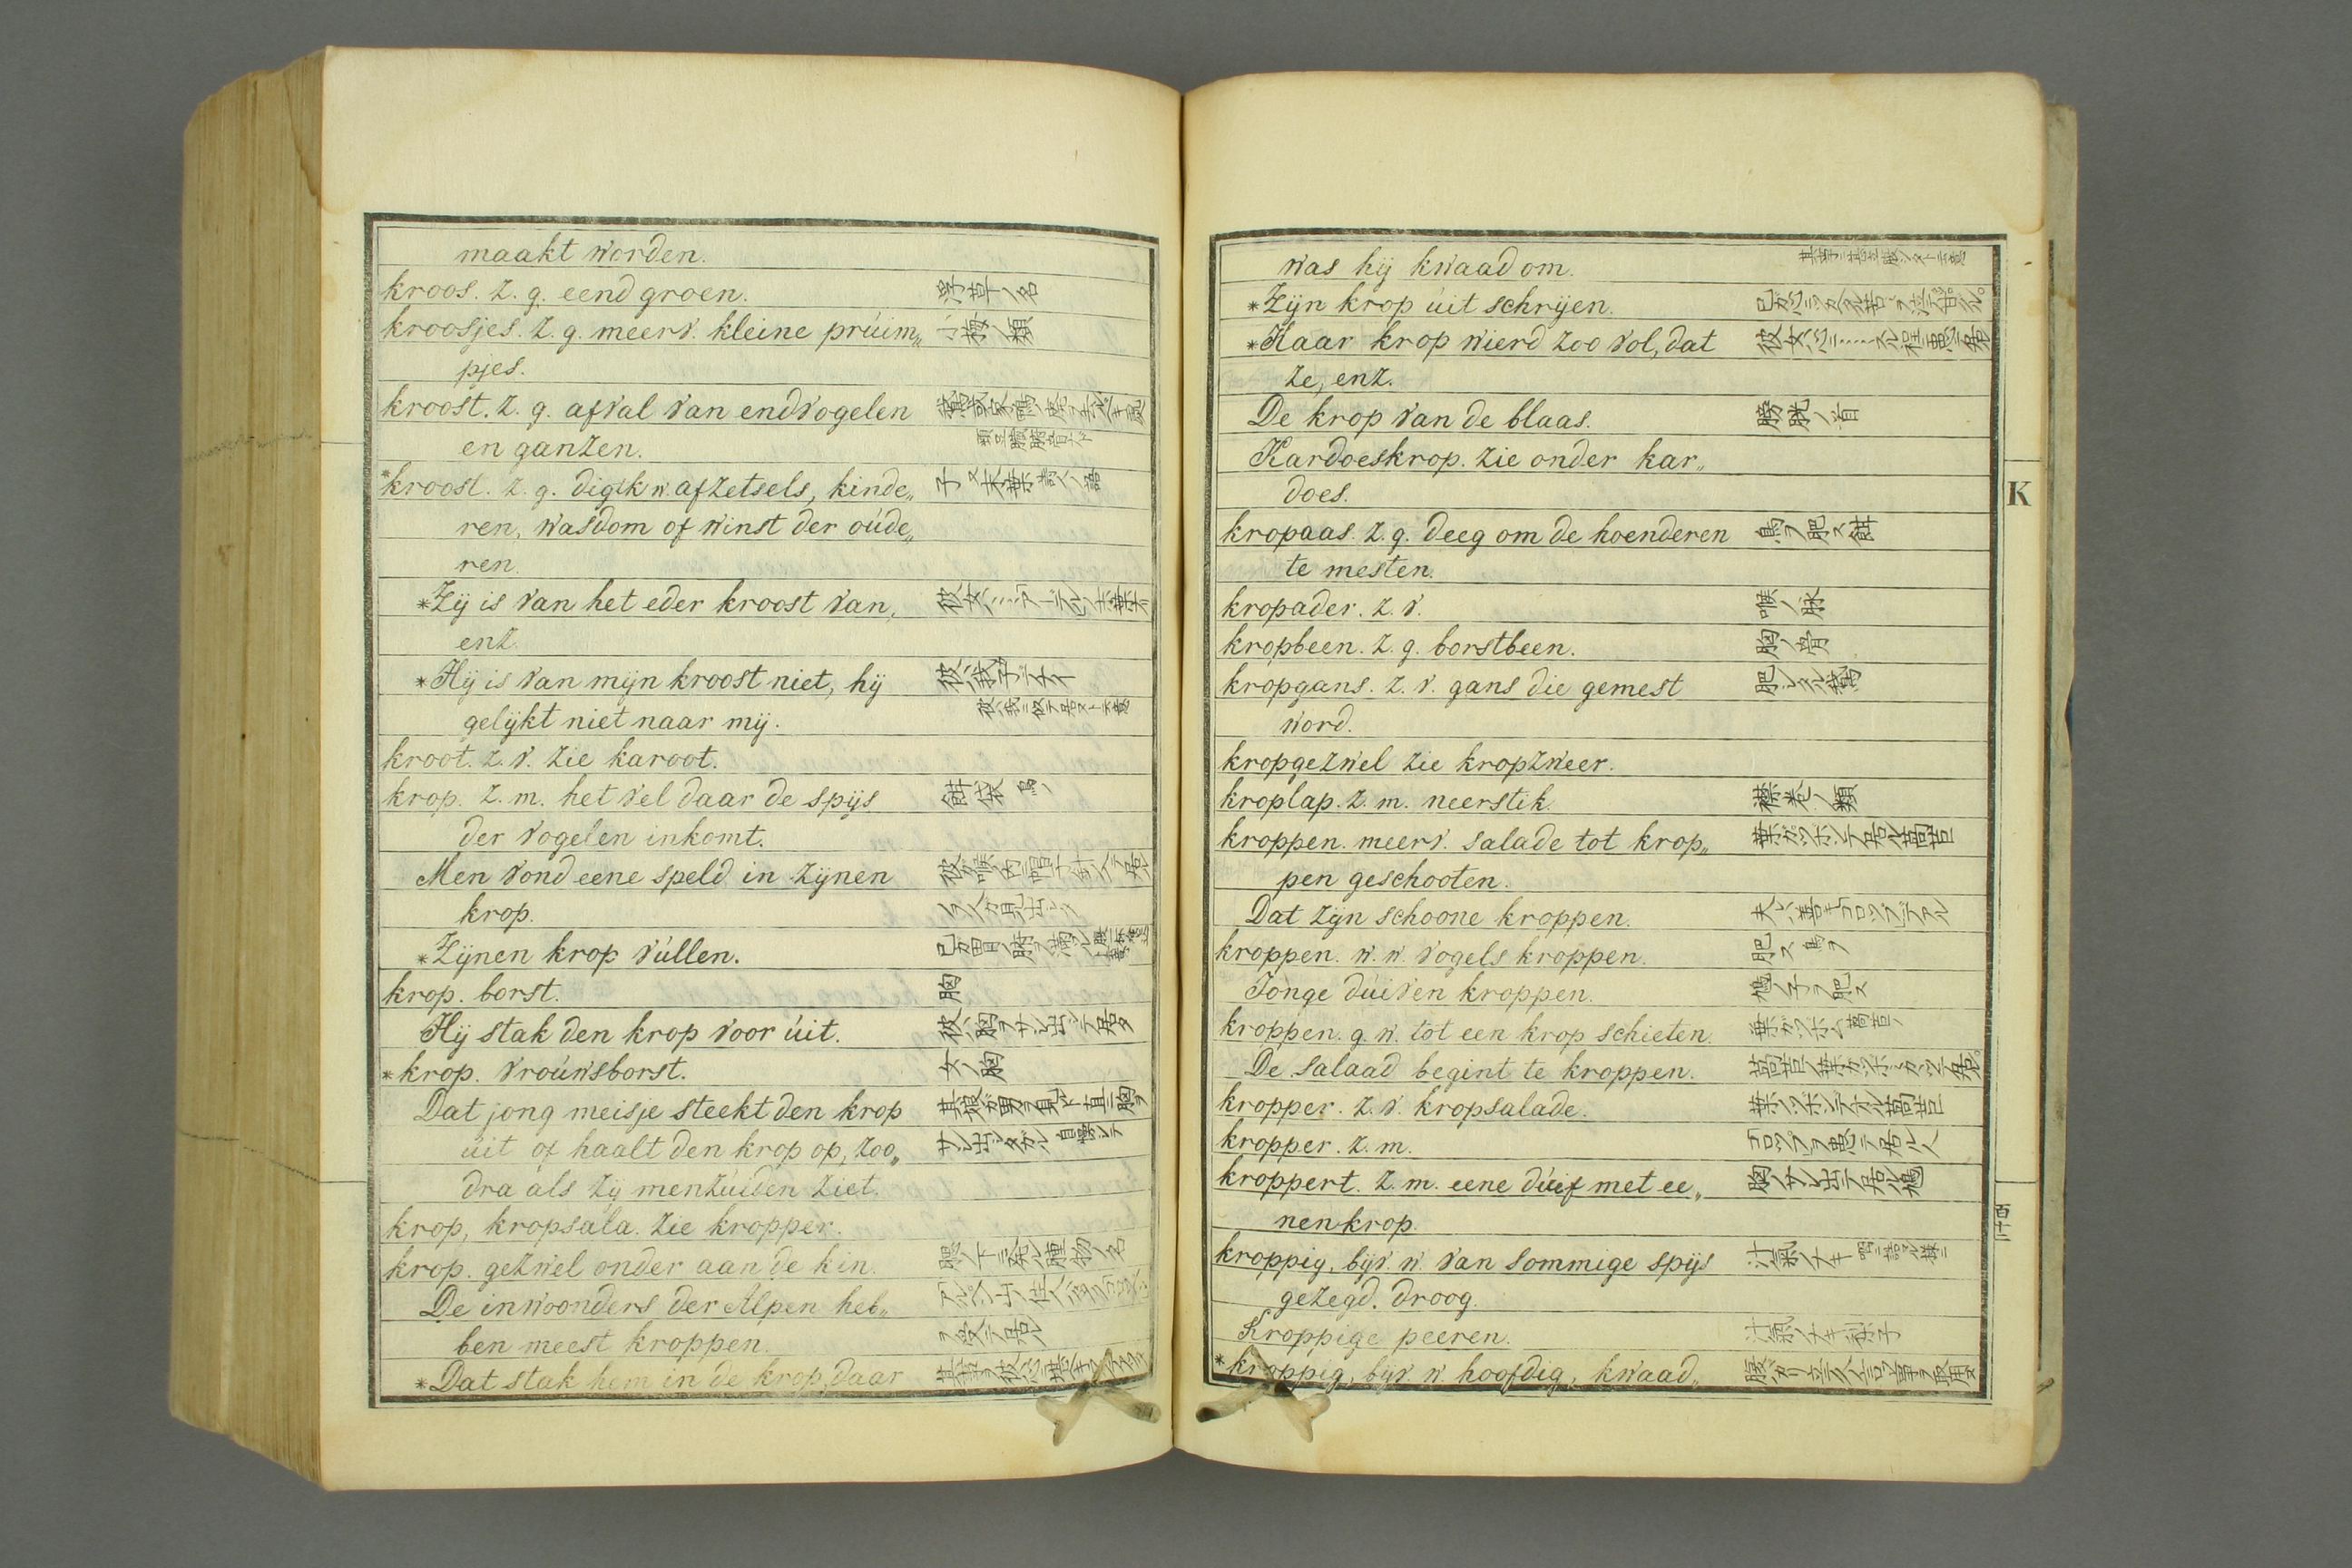 maakt worden.
kroos. z. g. eend groen. 浮草ノ名
kroosjes. z. g. meerv. kleine prúim„ 小梅ノ類
pjes.
kroost. z. g. afval van endvogelen
en ganzen.
*kroost. z. g. digtk w. afzetsels, kinde„ 子 又 末葉 詩人ノ語
ren, wasdom of winst der oúde„
ren.
*Zij is van het eder kroost van,
enz.
*Hij is van mijn kroost niet, hij 彼ハ我子デナイ
gelijkt niet naar mij.
kroot. z. v. zie karoot.
krop. z. m. het vel daar de spijs 餌袋 鳥ノ
der vogelen inkomt.
Men vond eene speld in zijnen
krop.
*Zijnen krop vúllen.
krop. borst. 胸
Hij stak den krop voor úit. 彼ハ胸ヲサシ出シテ居タ
*krop. vroúwsborst. 女ノ胸
Dat jong meisje steekt den krop 其娘ガ男ヲ見ルト直ニ胸ヲ
úit of haalt den krop op, zoo„
dra als zij menzúiden ziet.
krop, kropsala. zie kropper.
krop. gezwel onder aan de kin.
De inwoonders der Alpen heb„
ben meest kroppen.
*Dat stak hem in de krop, daar
was hij kwaad om.
*Zijn krop úit schrijen.
*Haar krop wierd zoo vol, dat
ze, enz.
De krop van de blaas. 膀胱ノ首
Kardoeskrop. zie onder kar„
does.
K
kropaas. z. g. deeg om de hoenderen 鳥ヲ肥ス餌
te mesten.
kropader. z. v. 喉ノ脉
kropbeen. z. g. borstbeen. 胸ノ骨
kropgans. z. v. gans die gemest 肥シタル鵞
word.
kropgezwel zie kropzweer.
kroplap. z. m. neerstik. 襟巻ノ類
kroppen. meerv. salade tot krop„ 葉ガツボンデ居ル萵苣
pen geschooten.
Dat zijn schoone kroppen.
kroppen. w. w. vogels kroppen. 肥ス 鳥ヲ
Jonge dúiven kroppen. 鳩ノ子ヲ肥ス
kroppen. g. w. tot een krop schieten. 葉ガツボム 萵苣ノ
De salaad begint te kroppen.
kropper. z. v. kropsalade.
kropper. z. m.
kroppert. z. m. eene dúif met ee„ 胸ヲサシ出シテ居ル鳩
nen krop.
kroppig, bijv. w. van sommige spijs
gezegd. droog.
Kroppige peeren. 汁氣ノナキ梨子
*kroppig, bijv. w. hoofdig, kwaad„